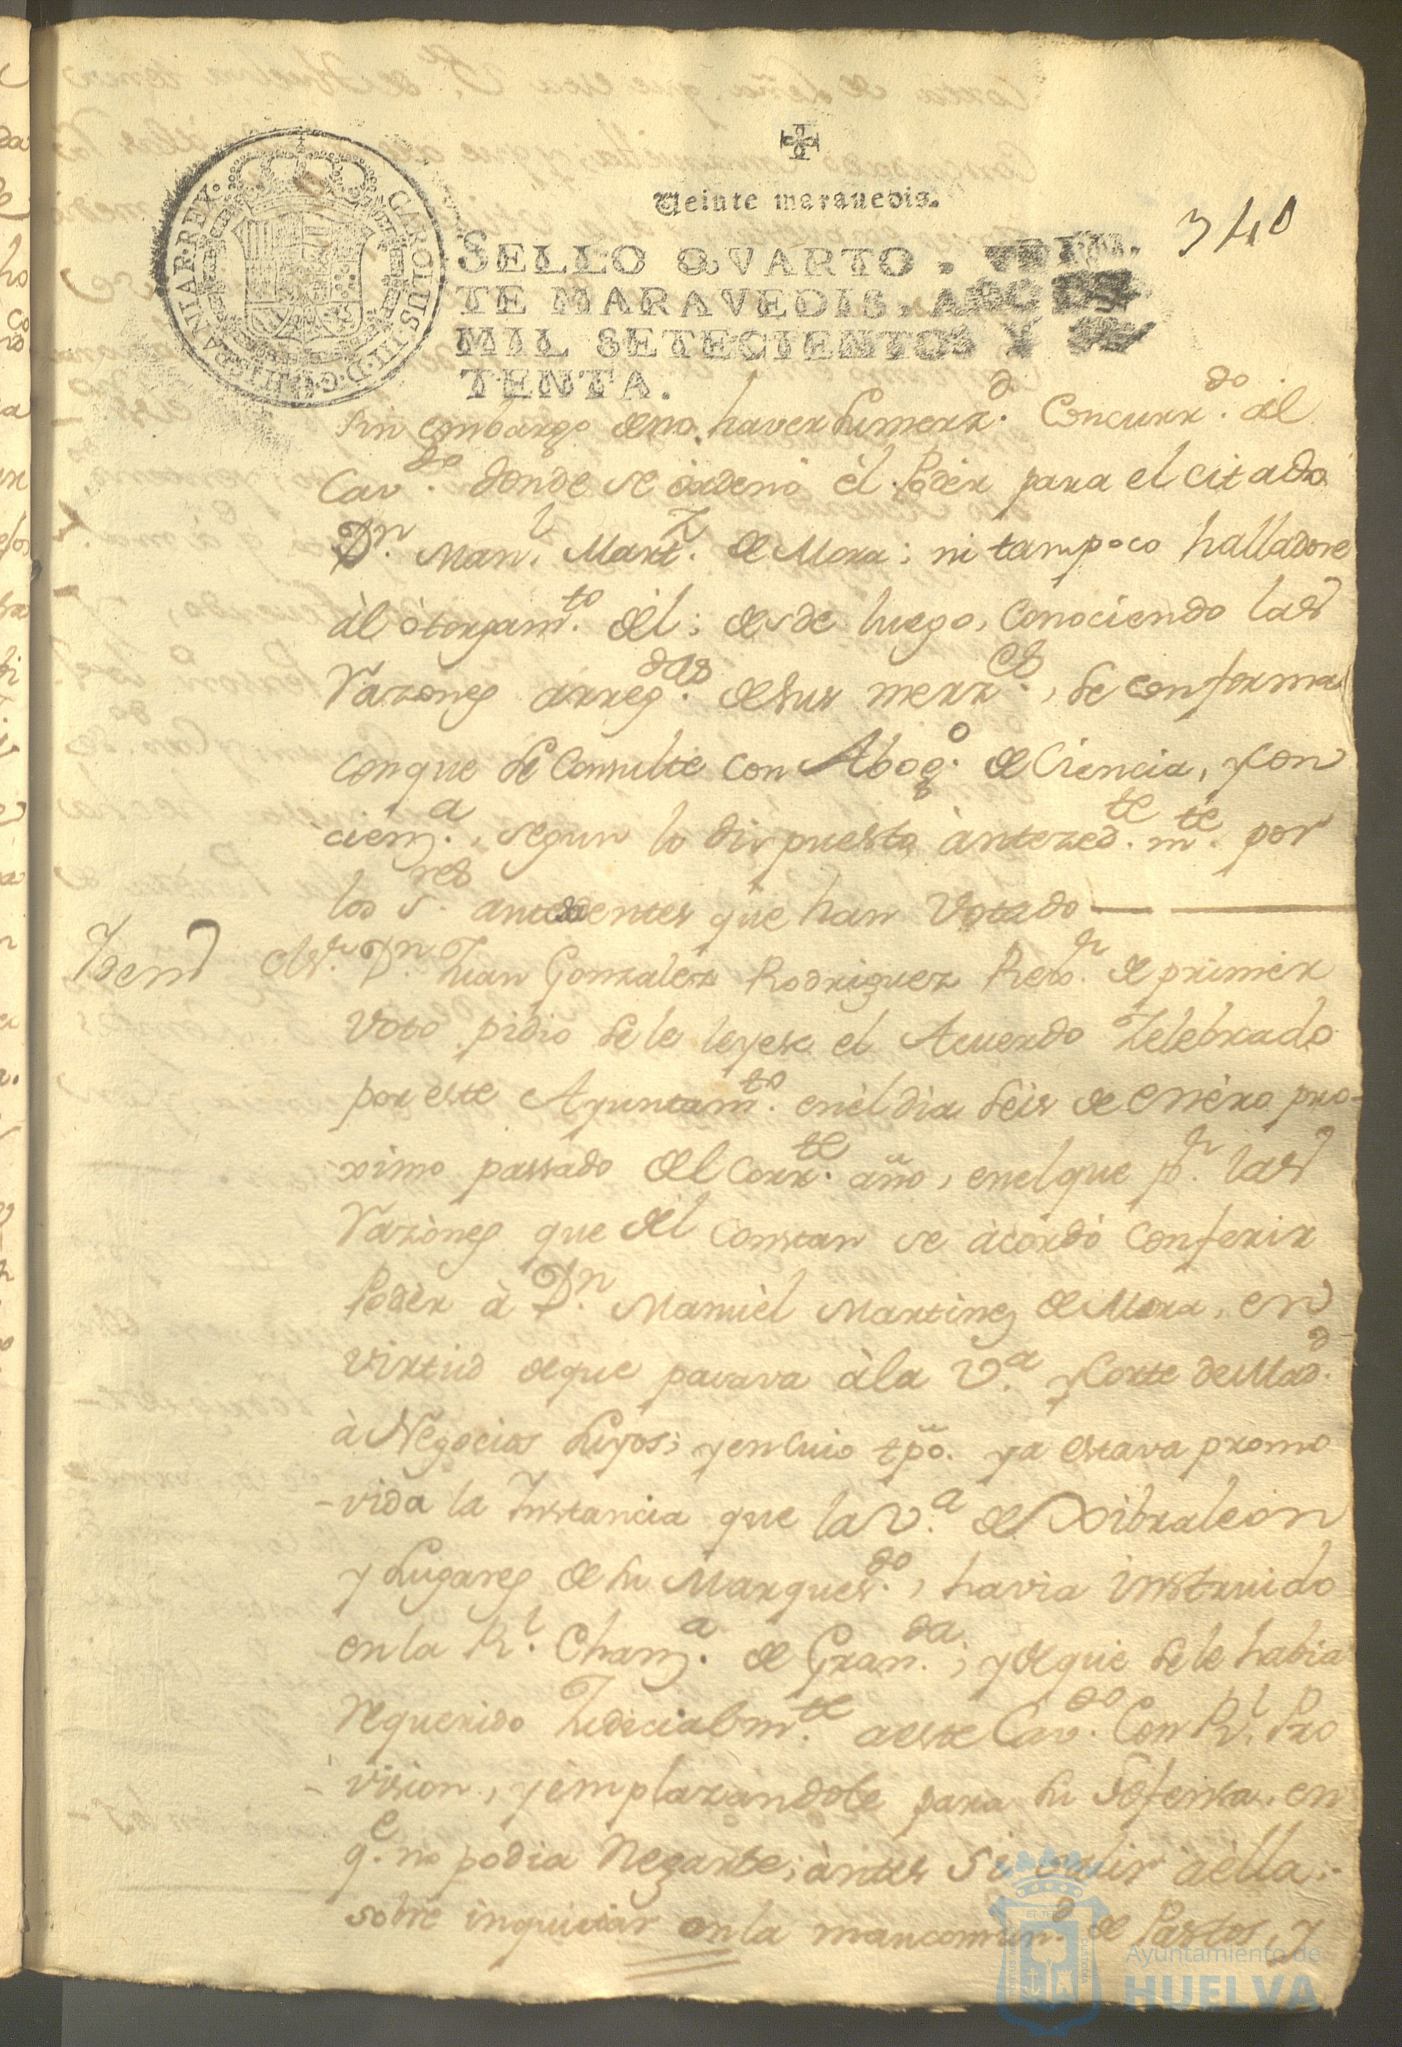 Veinte maravedis.
340
SELLO QVARTO. VEIN-
TE MARAVEDIS, AÑO DE
MIL SETECIENTOS Y SE
TENTA.
CAROLUS III D G HISPANIAR REX
sin embargo de no haver su merz.d Concurr.do al
Cav.do donde se ordenó él Podér para el citado
Dn. Man.l Mart.z de Mora; ni tampoco halladose
àl òtorgam.to dél; desde luego, Conociendo las
Razones arreg.das de sus merz.es, se conforma
con que se Consulte con Abog.o de Ciencia, y con
cienz.a, segun lo dispuesto àntezed.te m.te por
los S.res antecedentes que han Votado
Iden
Dn. Juan Gonzalez Rodriguez Reg.r de primer
Voto pidio se le leyese el Acuerdo Zelebrado
por este Ayuntam.to en èl dia séis de enèro pro-
ximo passado del Corr.te año, en el que p.r las
Razònes que dél Constan se àcordò Conferir
Podèr à Dn. Manuèl Martinez de Mora, en
virtud de que pasava àla V.a y Corte de Mad.d
à Negocios suyos; y en cuio tpo. ya estava promo
-vida la Instancia que la V.a de Xibraleon
y Lugares de su Marques.do, havia instruido
en la R.l Chanz.a de Gran.da; y de que se le habia
Requerido Judicialm.te a este Cav.do Con R.l Pro
-vision, y èmplazàndole para su defensa, en
q.e no podia Negarse; àntes Si salir aèlla;
sobre inquietar en la mancomun.d de Pastos, y
Ayuntamiento de
HUELVA